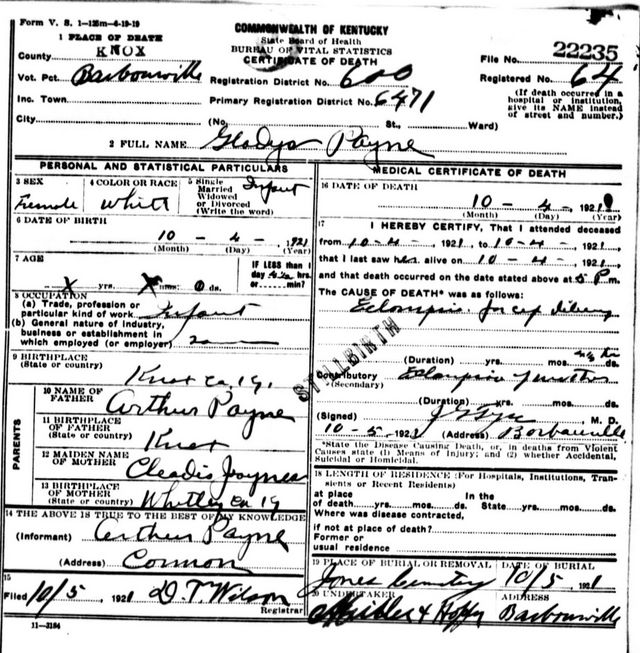 Form V. S. 1-125m-4-19-19
COMMONWEALTH OF KENTUCKY
State Board of Health
BUREAU OF VITAL STATISTICS
CERTIFICATE OF DEATH
1 PLACE OF DEATH
County KNOX
File No. 22235
Vot. Pct. Barbourville
Registration District No. 600
Registered No. 64
Inc. Town
Primary Registration District No. 6471
(If death occurred in a hospital or institution, give its NAME instead of street and number.)
City (No. St., Ward)
2 FULL NAME Gladys Payne
PERSONAL AND STATISTICAL PARTICULARS
3 SEX Female
4 COLOR OR RACE Whitt
5 Single Married Widowed or Divorced (Write the word) Infant
6 DATE OF BIRTH
10 - 4 - 1921
(Month) (Day) (Year)
7 AGE
IF LESS than 1 day hrs. or min?
X yrs. X mos. 0 ds.
8 OCCUPATION
(a) Trade, profession or particular kind of work Infant
(b) General nature of industry, business or establishment in which employed (or employer)
9 BIRTHPLACE
(State or country) Knox Co. Ky.
PARENTS
10 NAME OF FATHER Arthur Payne
11 BIRTHPLACE OF FATHER
(State or country) Knox
12 MAIDEN NAME OF MOTHER Cleadis Jaynes
13 BIRTHPLACE OF MOTHER
(State or country) Whitley Co Ky
14 THE ABOVE IS TRUE TO THE BEST OF MY KNOWLEDGE
(Informant) Arthur Payne
(Address) Connon
15
Filed 10/5 1921 D. T. Wilson
Registrar
11-3184
MEDICAL CERTIFICATE OF DEATH
16 DATE OF DEATH
10 - 4 - , 1921
(Month) (Day) (Year)
17 I HEREBY CERTIFY, That I attended deceased
from 10-4-, 1921, to 10-4-, 1921,
that I last saw her alive on 10-4-, 1921,
and that death occurred on the date stated above at 5 P.m.
The CAUSE OF DEATH* was as follows:
Eclampsia. forcep
STILLBIRTH
(Duration) yrs. mos. ds.
Contributory Eclampsia
(Secondary)
(Duration) yrs. mos. ds.
(Signed) M. D.
10-5-1921 (Address) Barbourville
*State the Disease Causing Death, or, in deaths from Violent
Causes state (1) Means of Injury; and (2) whether Accidental,
Suicidal or Homicidal.
18 LENGTH OF RESIDENCE (For Hospitals, Institutions, Transients or Recent Residents)
at place of death yrs. mos. ds. In the State yrs. mos. ds.
Where was disease contracted,
if not at place of death?
Former or
usual residence
19 PLACE OF BURIAL OR REMOVAL Jones Cemetery
DATE OF BURIAL 10/5, 1921
20 UNDERTAKER
ADDRESS Barbourville